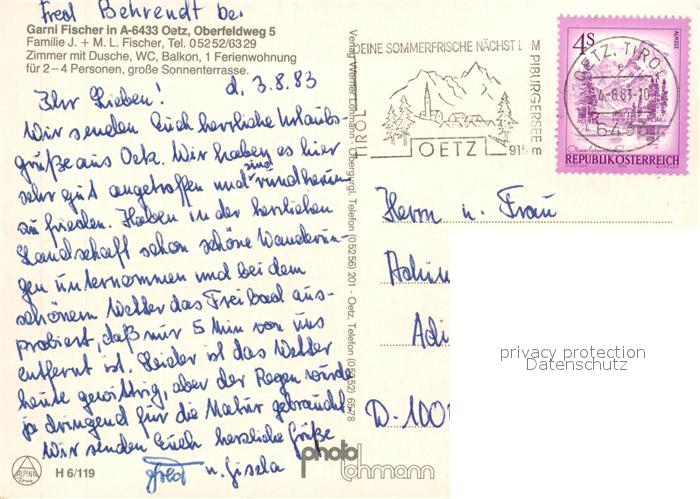 Fred Behrendt bei
Garni Fischer in A-6433 Oetz, Oberfeldweg 5
Familie J. + M. L. Fischer, Tel. 05252/6329
Zimmer mit Dusche, WC, Balkon, 1 Ferienwohnung
für 2–4 Personen, große Sonnenterrasse.
d. 3.8.83
Ihr Lieben!
Wir senden Euch herzliche Urlaubs-
grüße aus Oetz. Wir haben es hier
sehr gut angetroffen und sind rundherum
zufrieden. Haben in der herrlichen
Landschaft schon schöne Wanderun-
gen unternommen und bei dem
schönem Wetter das Freibad aus-
probiert, daß nur 5 Min von uns
entfernt ist. Leider ist das Wetter
heute gewittrig, aber der Regen würde
ja dringend für die Natur gebraucht.
Wir senden Euch herzliche Grüße
Fred u. Gisela
ALPINA
H 6/119
Verlag Werner Lohmann, Obergurgl, Telefon (05256) 201 - Oetz, Telefon (05252) 6578
photo
lohmann
DEINE SOMMERFRISCHE NÄCHST DEM
PIBURGERSEE
TIROL
OETZ
915 m
OETZ, TIROL
4.-8.83-10
6433
4s
ALMSEE
REPUBLIK ÖSTERREICH
Herrn u. Frau
Achim
D-100
privacy protection
Datenschutz